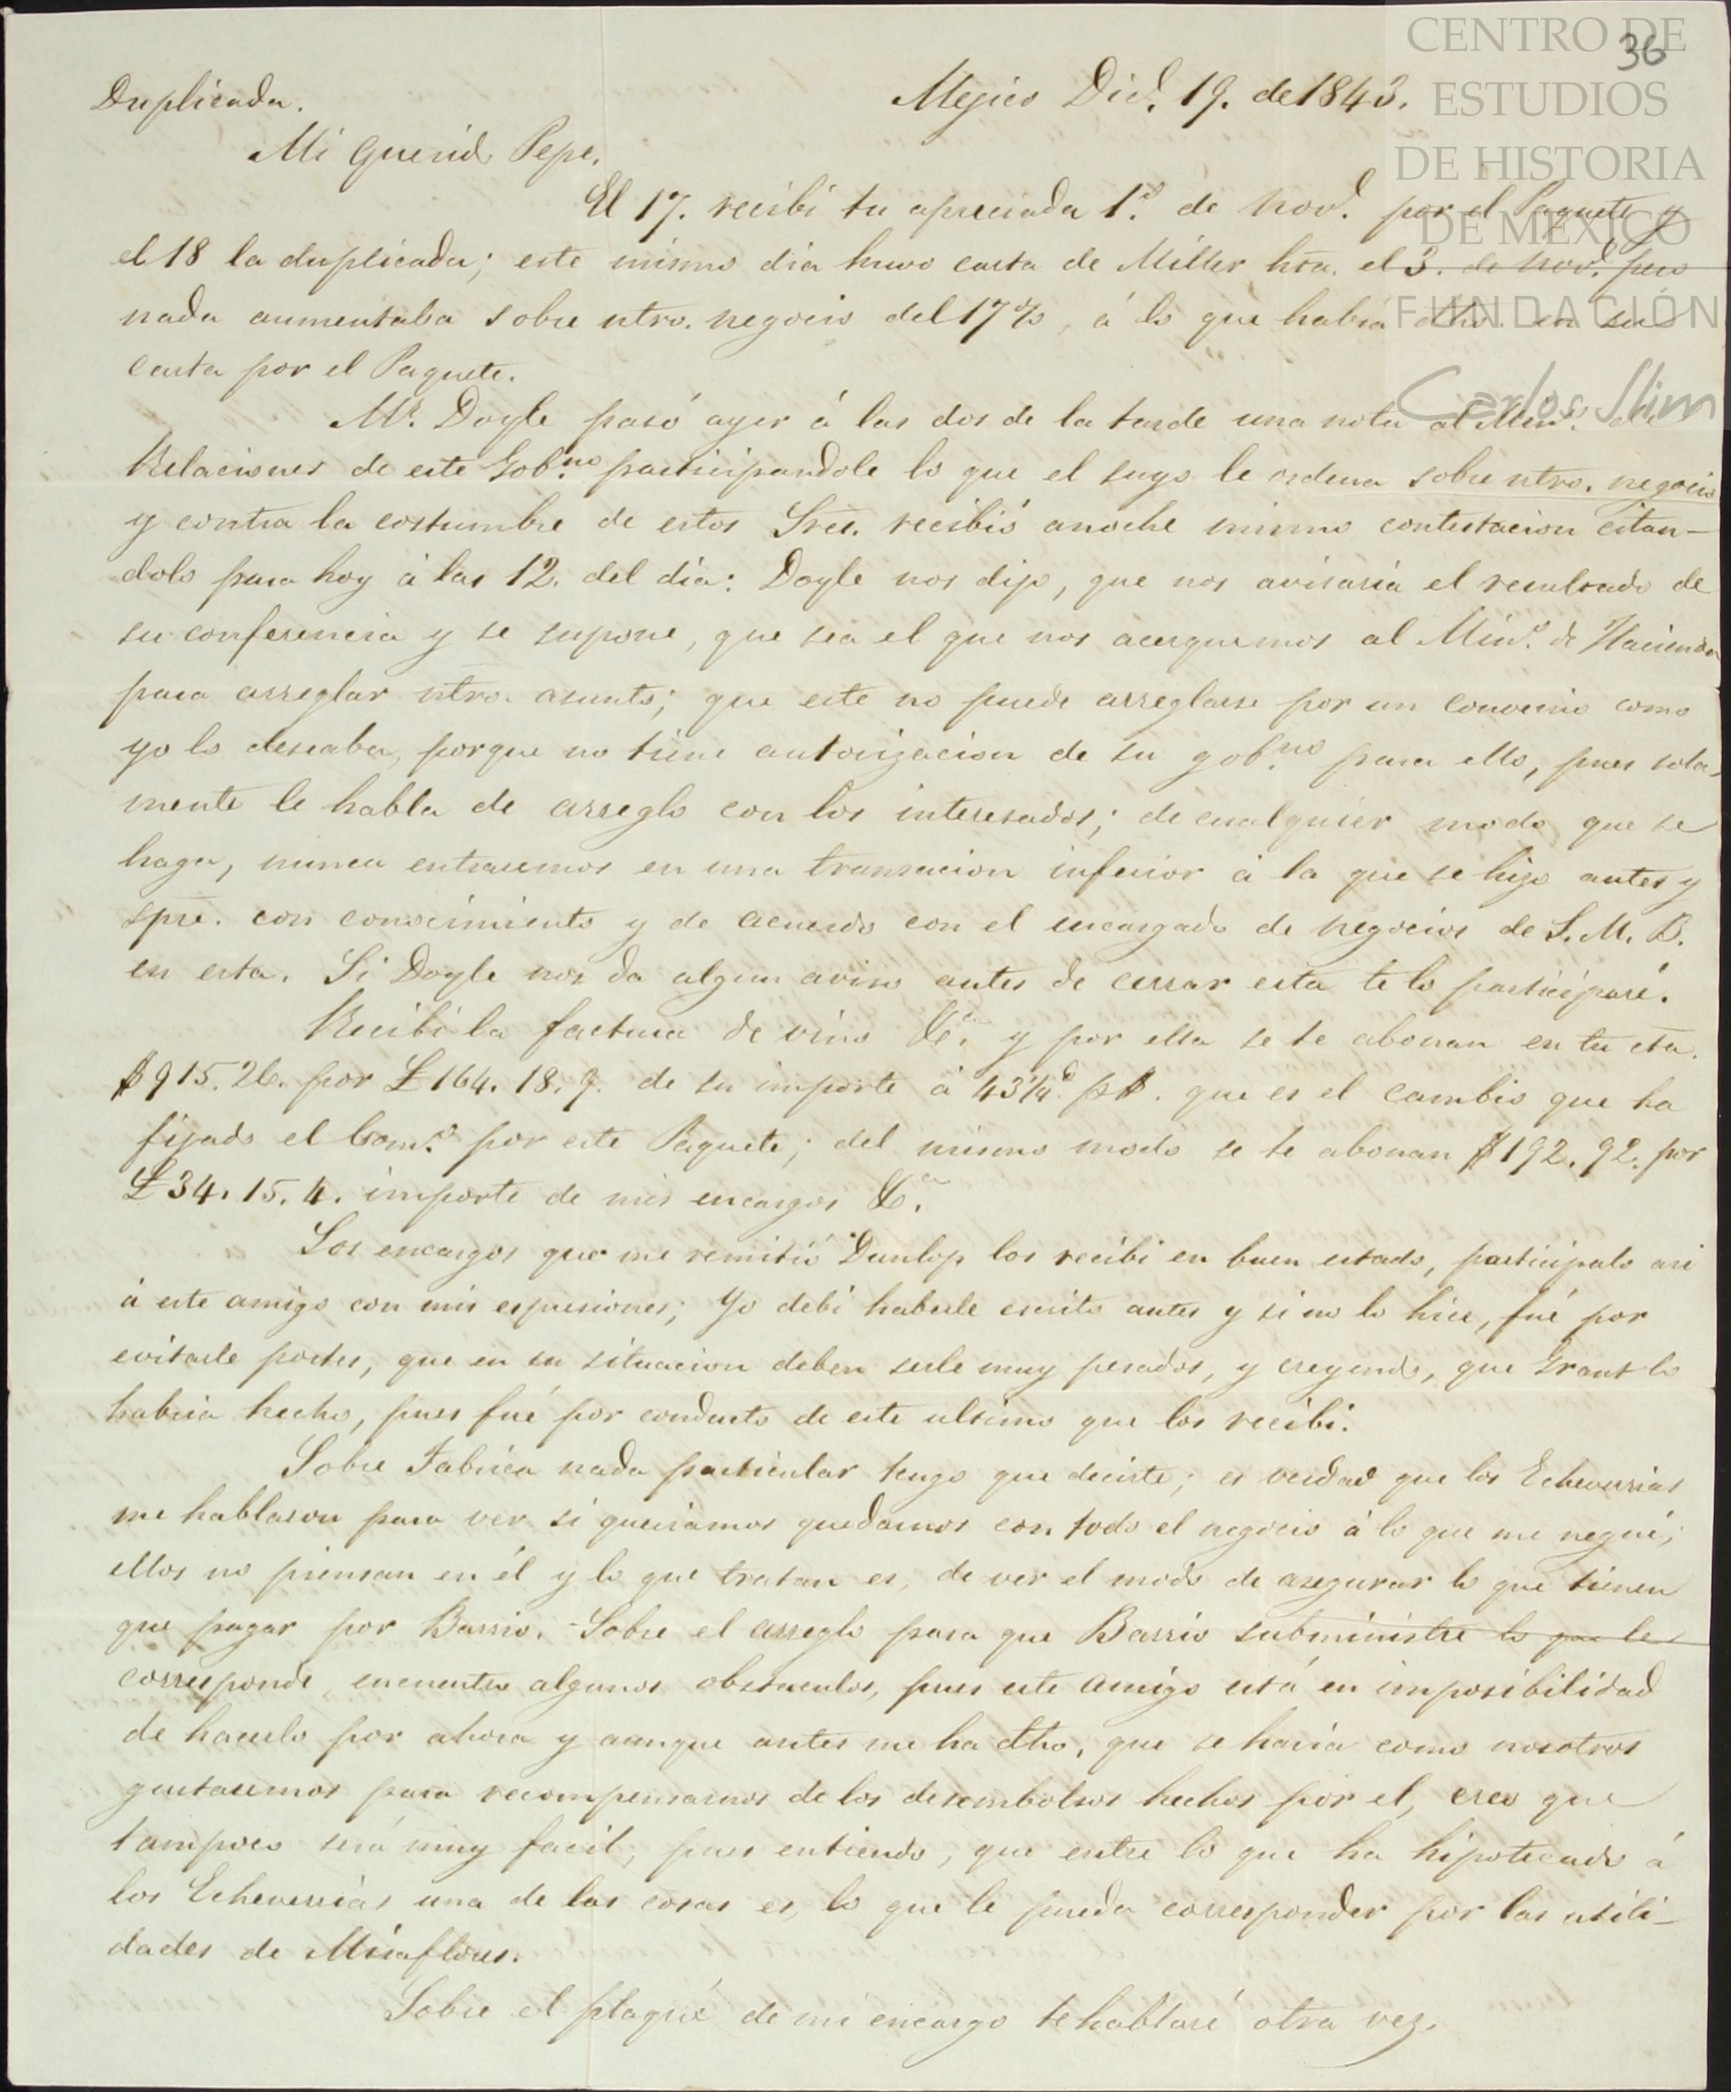 36
CENTRO DE
ESTUDIOS
DE HISTORIA
DE MÉXICO
FUNDACIÓN
Carlos Slim
Duplicada.
Mejico Dic.e 19. de 1843.
Mi querido Pepe.
El 17. recibi tu apreciada 1.o de Nov.e por el Paquete y
el 18 la duplicada; este mismo dia huvo carta de Miller hta. el 3. de Nov.e pero
nada aumentaba sobre ntro. negocio del 17%, á lo que habia dho. en su
carta por el Paquete.
Mr. Doyle pasó ayer á las dos de la tarde una nota al Min.o de
Relaciones de este Gob.no participandole lo que el suyo le ordena sobre ntro. negocio
y contra la costumbre de estos Sres. recibió anoche mismo contestacion citan-
dolo para hoy á las 12. del dia: Doyle nos dijo, que nos avisaria el resultado de
su conferencia y se supone, que sea el que nos acerquemos al Min.o de Hacienda
para arreglar ntro. asunto; que este no puede arreglarse por un convenio como
yo lo deseaba, porque no tiene autorizacion de su gob.no para ello, pues sola-
mente le habla de arreglo con los interesados; de cualquier modo que se
haga, nunca entraremos en una transacion inferior á la que se hizo antes y
spre. con conocimiento y de acuerdo con el encargado de negocios de S. M. B.
en esta. Si Doyle nos da algun aviso antes de cerrar esta te lo participaré.
Recibi la factura de vino &a. y por ella se te abonan en tu cta.
$915.26. por £164.18.9. de su importe á 43¼d p$. que es el cambio que ha
fijado el Com.o por este Paquete; del mismo modo se te abonan $192.92. por
£34.15.4. importe de mis encargos &a.
Los encargos que me remitió Dunlop los recibi en buen estado, participalo asi
á este amigo con mis espresiones; Yo debi haberle escrito antes y si no lo hice, fué por
evitarle portes, que en su situacion deben serle muy pesados, y creyendo, que Grant lo
habria hecho, pues fué por conducto de este ultimo que los recibi.
Sobre Fabrica nada particular tengo que decirte; es verdad que los Echeverrias
me hablaron para ver si queriamos quedarnos con todo el negocio á lo que me negué;
ellos no piensan en él y lo que tratan es, de ver el modo de asegurar lo que tienen
que pagar por Barrio. - Sobre el arreglo para que Barrio subministre lo que le
corresponde, encuentro algunos obstaculos, pues este amigo está en imposibilidad
de hacerlo por ahora y aunque antes me ha dho, que se haria como nosotros
gustaremos para recompensarnos de los desembolsos hechos por el, creo que
tampoco será muy facil, pues entiendo, que entre lo que ha hipotecado á
los Echeverrias una de las cosas es, lo que le pueda corresponder por las utili-
dades de Miraflores.
Sobre el plaqué de mi encargo te hablaré otra vez.